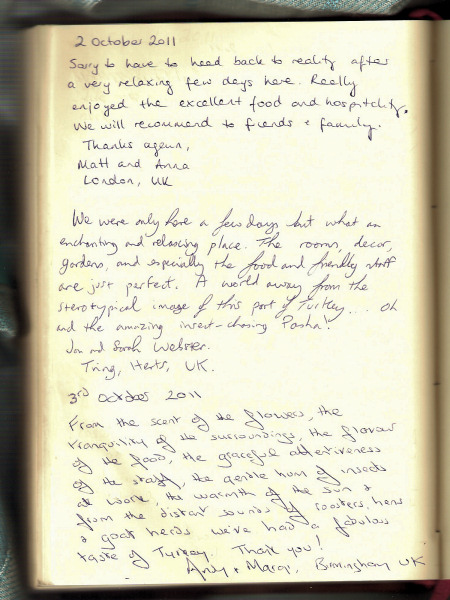 2 October 2011
Sorry to have to head back to reality after
a very relaxing few days here. Really
enjoyed the excellent food and hospitality.
We will recommend to friends + family.
Thanks again,
Matt and Anna
London, UK
We were only here a few days but what an
enchanting and relaxing place. The rooms, decor,
gardens, and especially the food and friendly staff
are just perfect. A world away from the
sterotypical image of this part of Turkey... oh
and the amazing insect-chasing Pasha!
and Sarah Webster.
Tring, Herts, UK.
3rd October 2011
From the scent of the flowers, the
tranquility of the surroundings, the flavour
of the food, the graceful attentiveness
of the staff, the gentle hum of insects
at work, the warmth of the sun &
from the distant sounds of roosters, hens
& goat herds we've had a fabulous
taste of Turkey. Thank you!
Andy + Birmingham UK